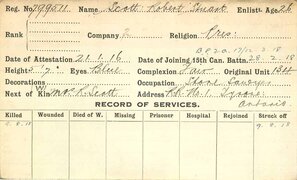 Reg. No. 799511 Name Scott Robert Stuart Enlistt. Age 26
Rank Company B Religion Pres:
Date of Attestation 21.1.16 Date of Joining 15th Can. Battn. 28.2.18
Height 5' 7" Eyes Blue Complexion Fair Original Unit 134
Decorations Occupation Stone Sawyer
Next of Kin Mrs R. Scott Address R.R. No. 1,
Ontario
RECORD OF SERVICES.
Killed Wounded Died of W. Missing Prisoner Hospital Rejoined Struck off
9.8.18